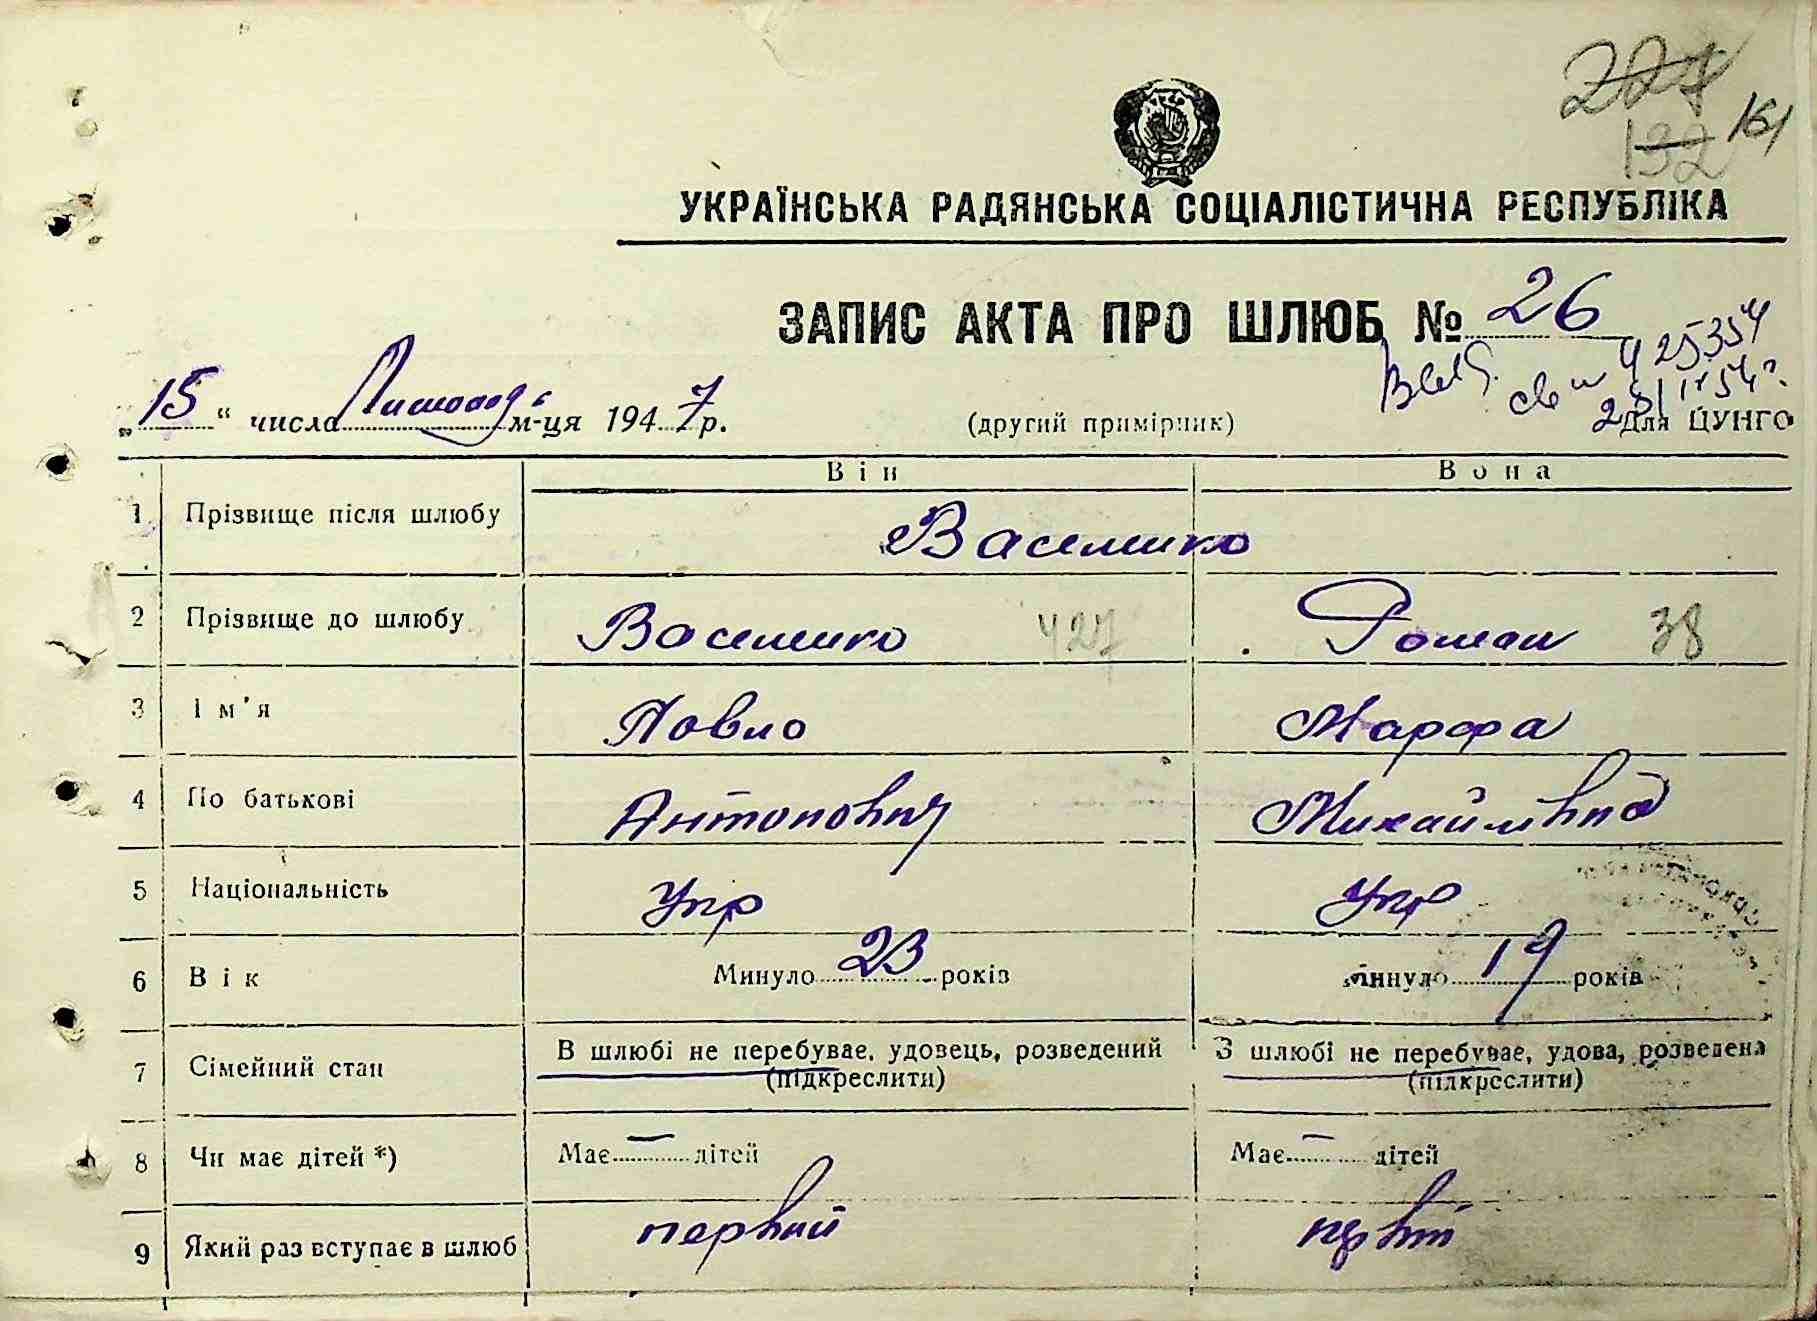 227
132 161
УКРАЇНСЬКА РАДЯНСЬКА СОЦІАЛІСТИЧНА РЕСПУБЛІКА
ЗАПИС АКТА ПРО ШЛЮБ № 26
„15“ числа Листопад м-ця 1947 р.
(другий примірник)
Для ЦУНГО
Він Вона
1 Прізвище після шлюбу Василишко
2 Прізвище до шлюбу Василишко 427 Роман 38
3 Ім'я Павло Марфа
4 По батькові Антонович Михайлівна
5 Національність Укр Укр
6 Вік Минуло 23 років Минуло 19 років
7 Сімейний стан В шлюбі не перебуває, удовець, розведений (підкреслити) В шлюбі не перебуває, удова, розведена (підкреслити)
8 Чи має дітей *) Має — дітей Має — дітей
9 Який раз вступає в шлюб первий